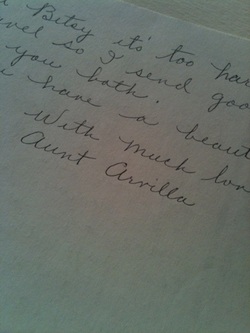 Betsy it's too har
vel so I send good
you both.
u have a beauti
With much lov
Aunt Arvilla